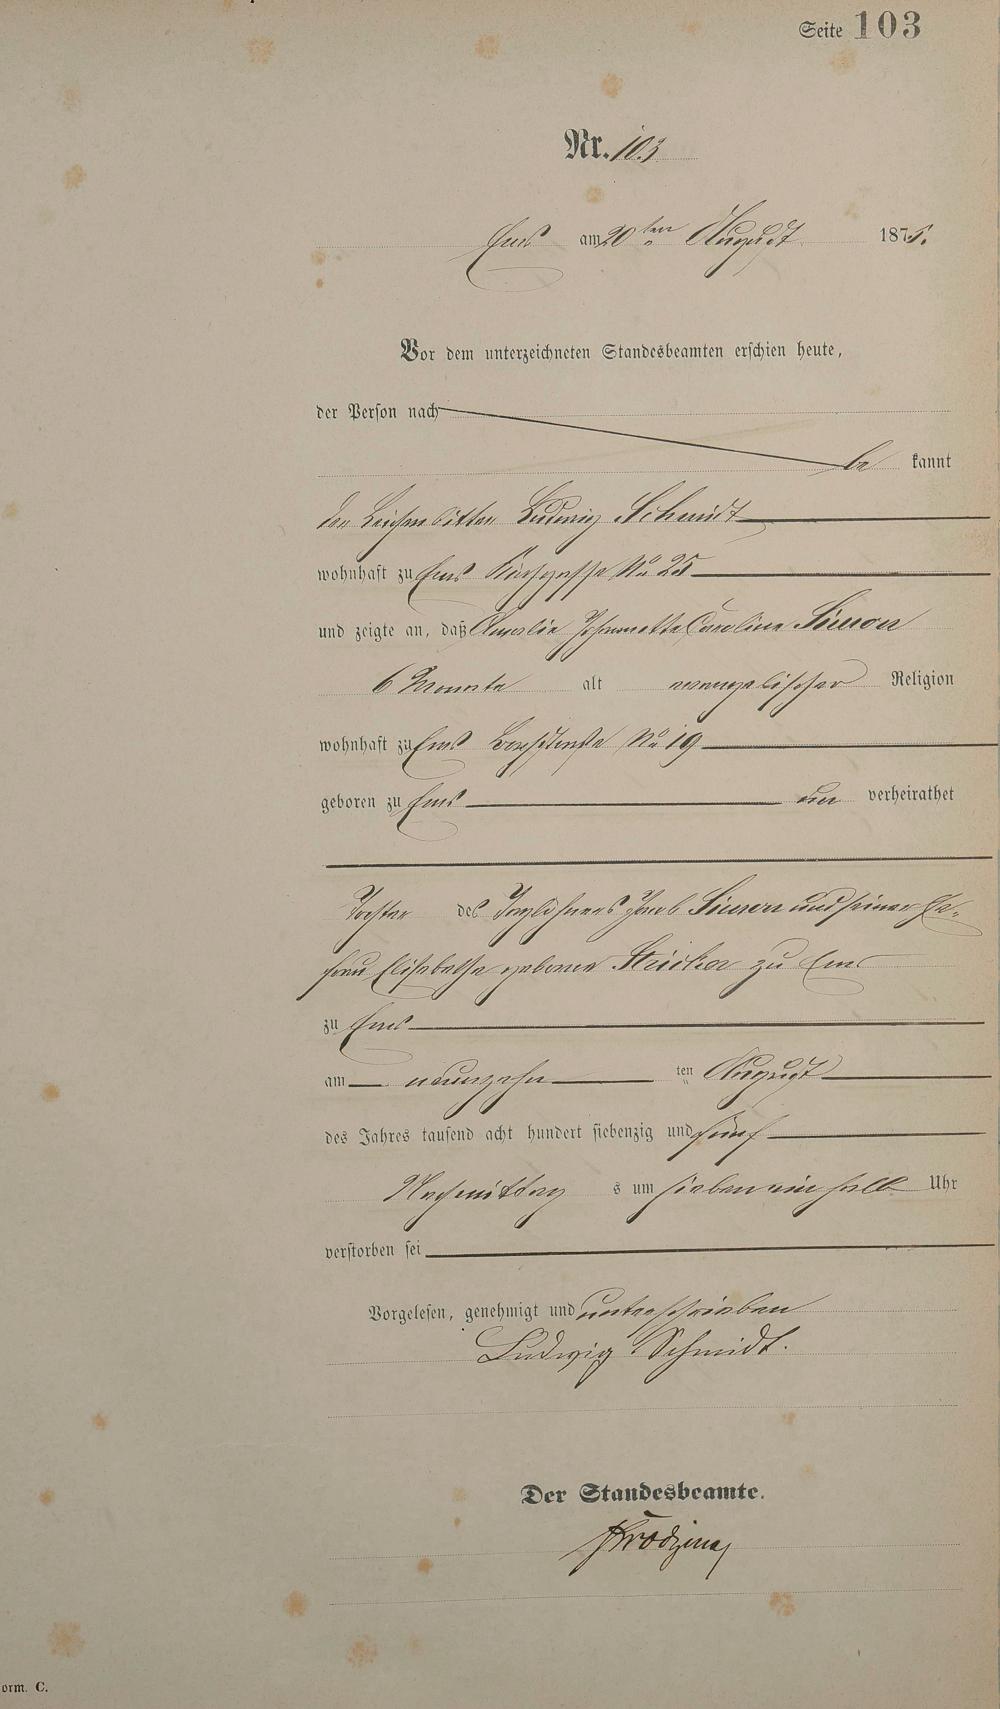 Seite 103
Nr. 103
Ems am 20ten August 1875.
Vor dem unterzeichneten Standesbeamten erschien heute,
der Person nach
be kannt
der Leichenbitter Ludwig Schmidt
wohnhaft zu Ems Kirchgasse No 25
und zeigte an, daß Amalie Johannette Caroline Simon
6 Monate alt evangelischer Religion
wohnhaft zu Ems No 19
geboren zu Ems un verheirathet
Tochter des Taglöhners Jacob Simon und seiner Ehe-
frau Elisabethe geborne Stricker zu Ems
zu Ems
am neunzehn ten August
des Jahres tausend acht hundert siebenzig und fünf
Nachmittag s um sieben ein halb Uhr
verstorben sei
Vorgelesen, genehmigt und unterschrieben
Ludwig Schmidt.
Der Standesbeamte.
orm. C.